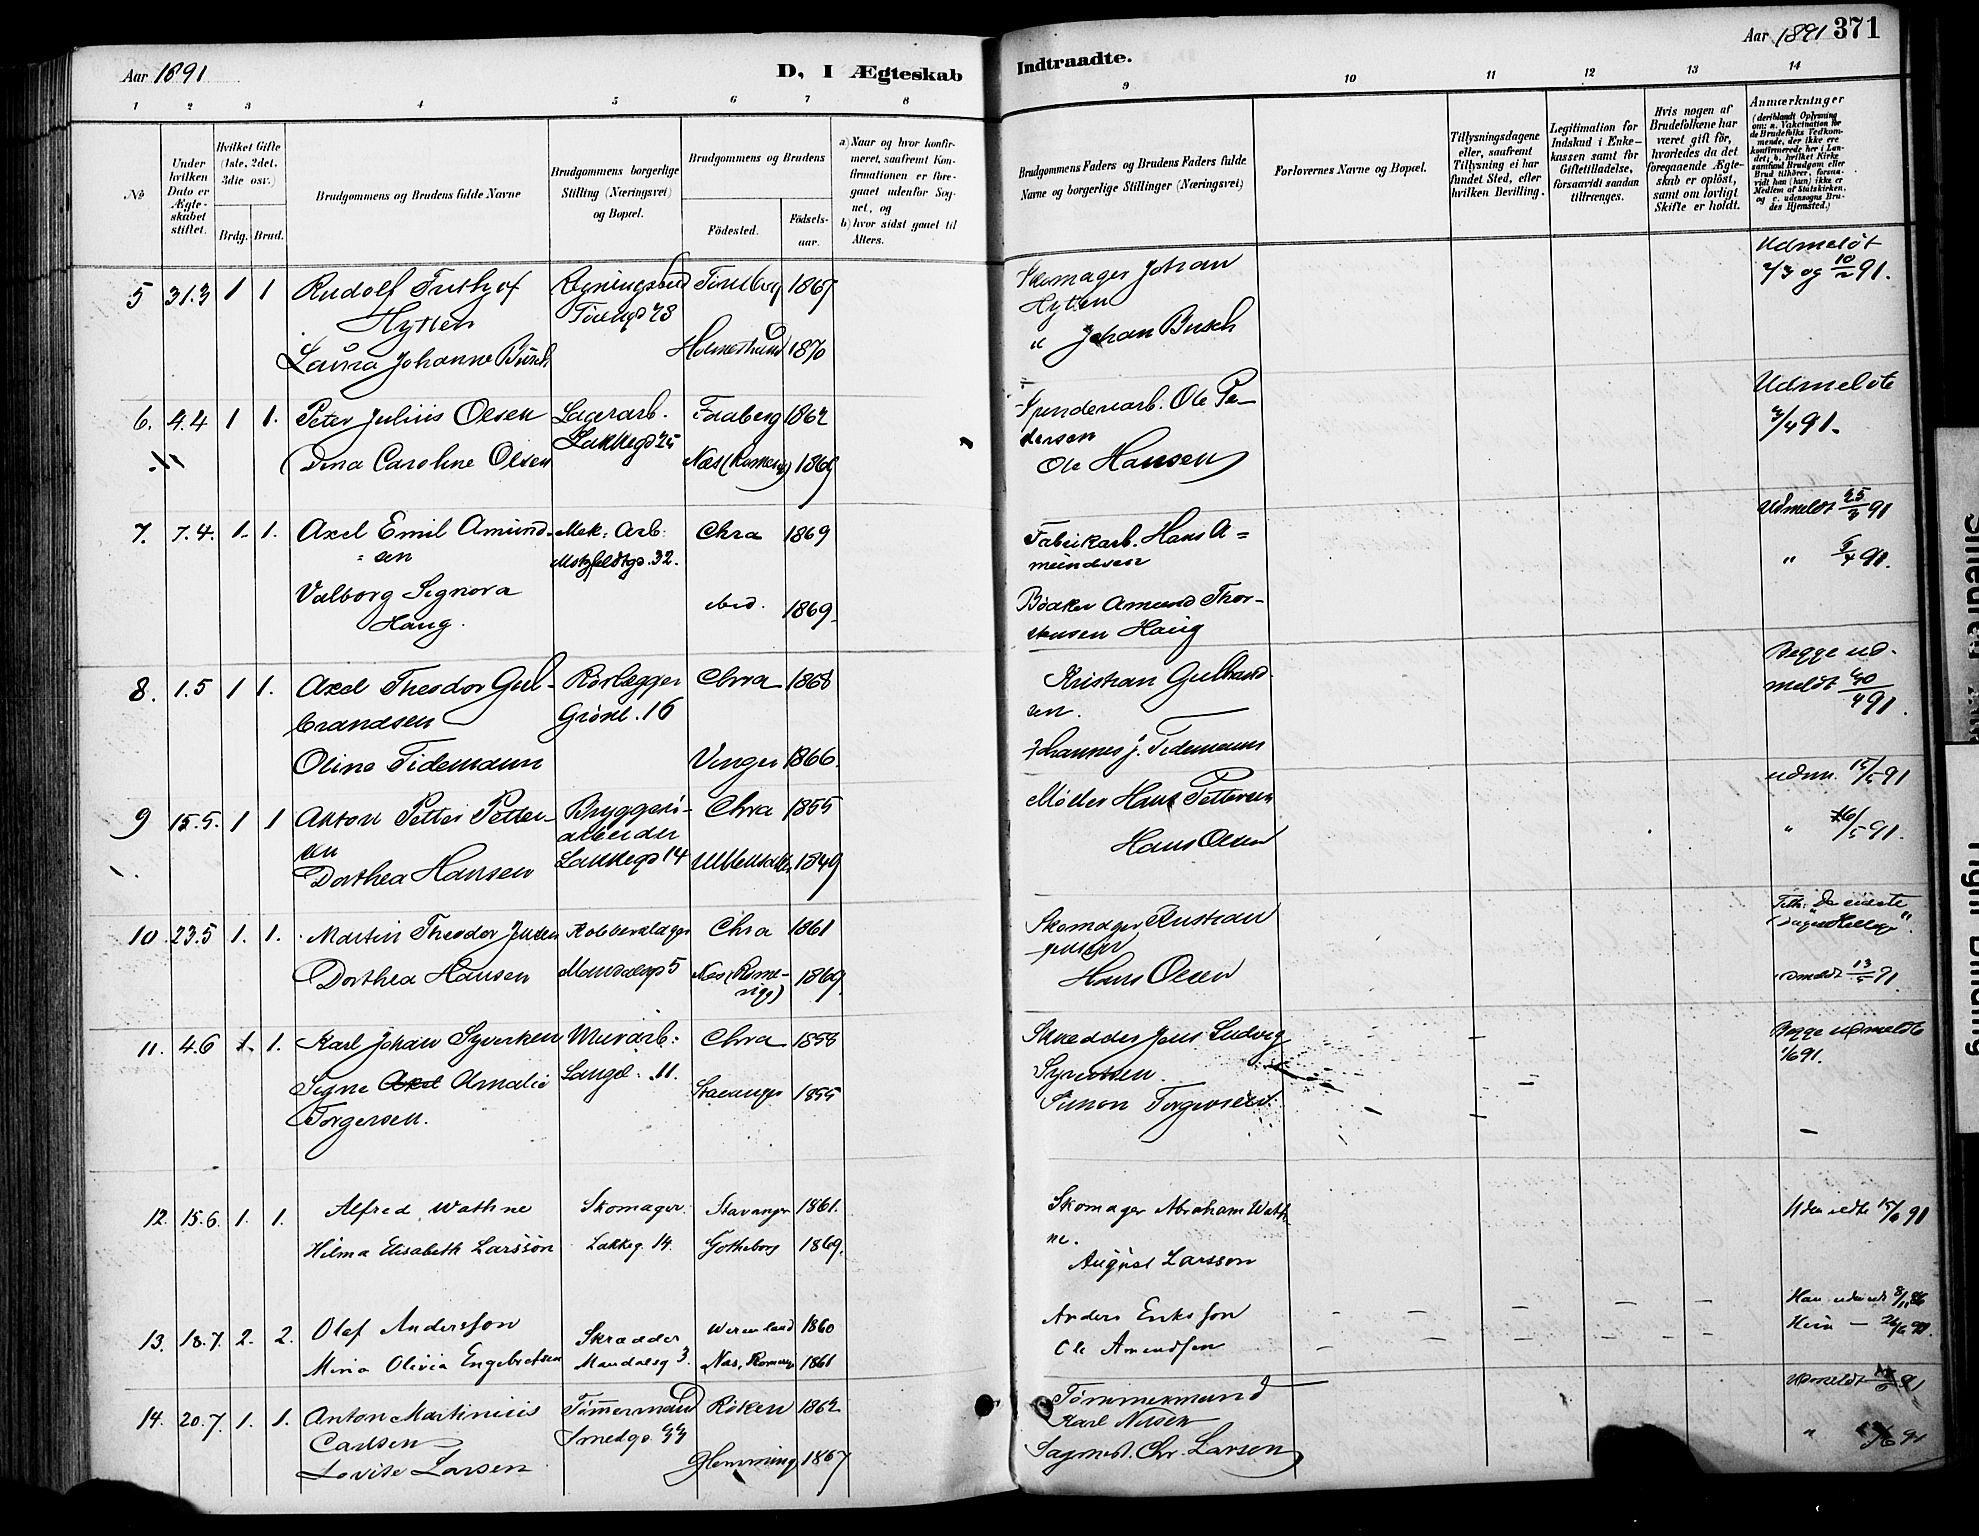 Aar 1891
D, I Ægteskab
1 2 3 4 5 6 7 8
№
Under hvilken Dato er Ægteskabet stiftet.
Hvilket Gifte (1ste, 2det, 3die osv.)
Brdg. Brud.
Brudgommens og Brudens fulde Navne
Brudgommens borgerlige Stilling (Næringsvei) og Bopæl.
Brudgommens og Brudens
Fødested.
Fødsels-aar.
a) Naar og hvor konfirmeret, saafremt Konfirmationen er foregaaet udenfor Sognet, og
b) hvor sidst gaaet til Alters.
5 31.3 1 1 Rudolf Frithjof 1867
Hytten
Laura Johanne Busch Holmestrand 1870
6. 4.4 1 1. Peter Julius Olsen Lagerarb. Faaberg 1862
Lakkegd 25
Dina Caroline Olsen Næs (Romerig) 1869
7. 7.4. 1. 1. Axel Emil Amund- Mek. Arb. Chra 1869
sen Motzfeldtgd. 32.
Valborg Signora ibid. 1869.
Haug.
8. 1.5 1 1. Axel Theodor Gul- Rørlægger Chra 1868
brandsen Grønl. 16
Oline Tidemann Vinger 1866.
9 15.5. 1 1 Anton Petter Petter- Bryggeri- Chra 1855
sen arbeider
Dorthea Hansen Lakkegd 14 Ullensaker 1849
10. 23.5 1. 1. Martin Theodor Jensen Kobberslager Chra 1861
Dorthea Hansen Mandalsgd 5 Næs (Rome- 1869.
rige)
11. 4.6 1. 1. Karl Johan Syvertsen Murarb. Chra 1858
Signe Axel Amalie Langgd. 11. Stavanger 1855
Torgersen.
12. 15.6. 1. 1. Alfred Wathne Skomager. Stavanger 1861.
Hilma Elisabeth Larsson Lakkeg. 14. Gøtheborg 1869.
13. 18.7. 2. 2. Olaf Andersson Skrædder Wermland 1860
Mina Olivia Engebretsen Mandalsg 3. Næs, Romerige 1861
14. 20.7. 1. 1. Anton Martinius Tømmermand Røken 1862
Carlsen Smedgd. 33
Lovise Larsen Glemming 1867
Indtraadte.
Aar 1891 371
9 10 11 12 13 14
Brudgommens Faders og Brudens Faders fulde Navne og borgerlige Stillinger (Næringsvei)
Forlovernes Navne og Bopæl.
Tillysningsdagene eller, saafremt Tillysning ei har fundet Sted, efter hvilken Bevilling.
Legitimation for Indskud i Enkekassen samt for Giftetilladelse, forsaavidt saadan tiltrænges.
Hvis nogen af Brudefolkene har været gift før, hvorledes da det foregaaende Ægteskab er opløst, samt om lovligt Skifte er holdt.
Anmærkninger (deriblandt Oplysning om: a. Vakcination for de Brudefolks Vedkommende, der ikke ere konfirmerede her i Landet; b. hvilket Kirkesamfund Brudgom eller Brud tilhører, forsaavidt han (hun) ikke er Medlem af Statskirken, og c. udensogns Brudes Hjemsted.)
Skomager Johan Udmeldt
Hytten 2/3 og 10/2 91.
" Johan Busch
Spinderiarb. Ole Pe- Udmeldte
dersen
Ole Hansen
Fabrikarb. Hans A- Udmeldt 25/3 91
mundsen
Bødker Amund Thor-
stensen Haug
Kristian Gulbrand- Begge ud-
sen. meldt
Johannes J. Tidemann
Møller Hans Pettersen udm. 15/5 91
Hans Olsen
Skomager Kristian
Jensen
Hans Olsen udmeldt 13/5 91
Skrædder Jens Ludvig Begge udmeldte
Syvertsen.
Simon Torgersen.
Skomager Abraham Wath- Udmeldte 15/6 91
ne.
August Larsson
Anders Eriksson Han udmeldt 8/11 86
Ole Amundsen
Tømmermand Udmeldt
Karl Nilsen
Sagmest. Chr. Larsen